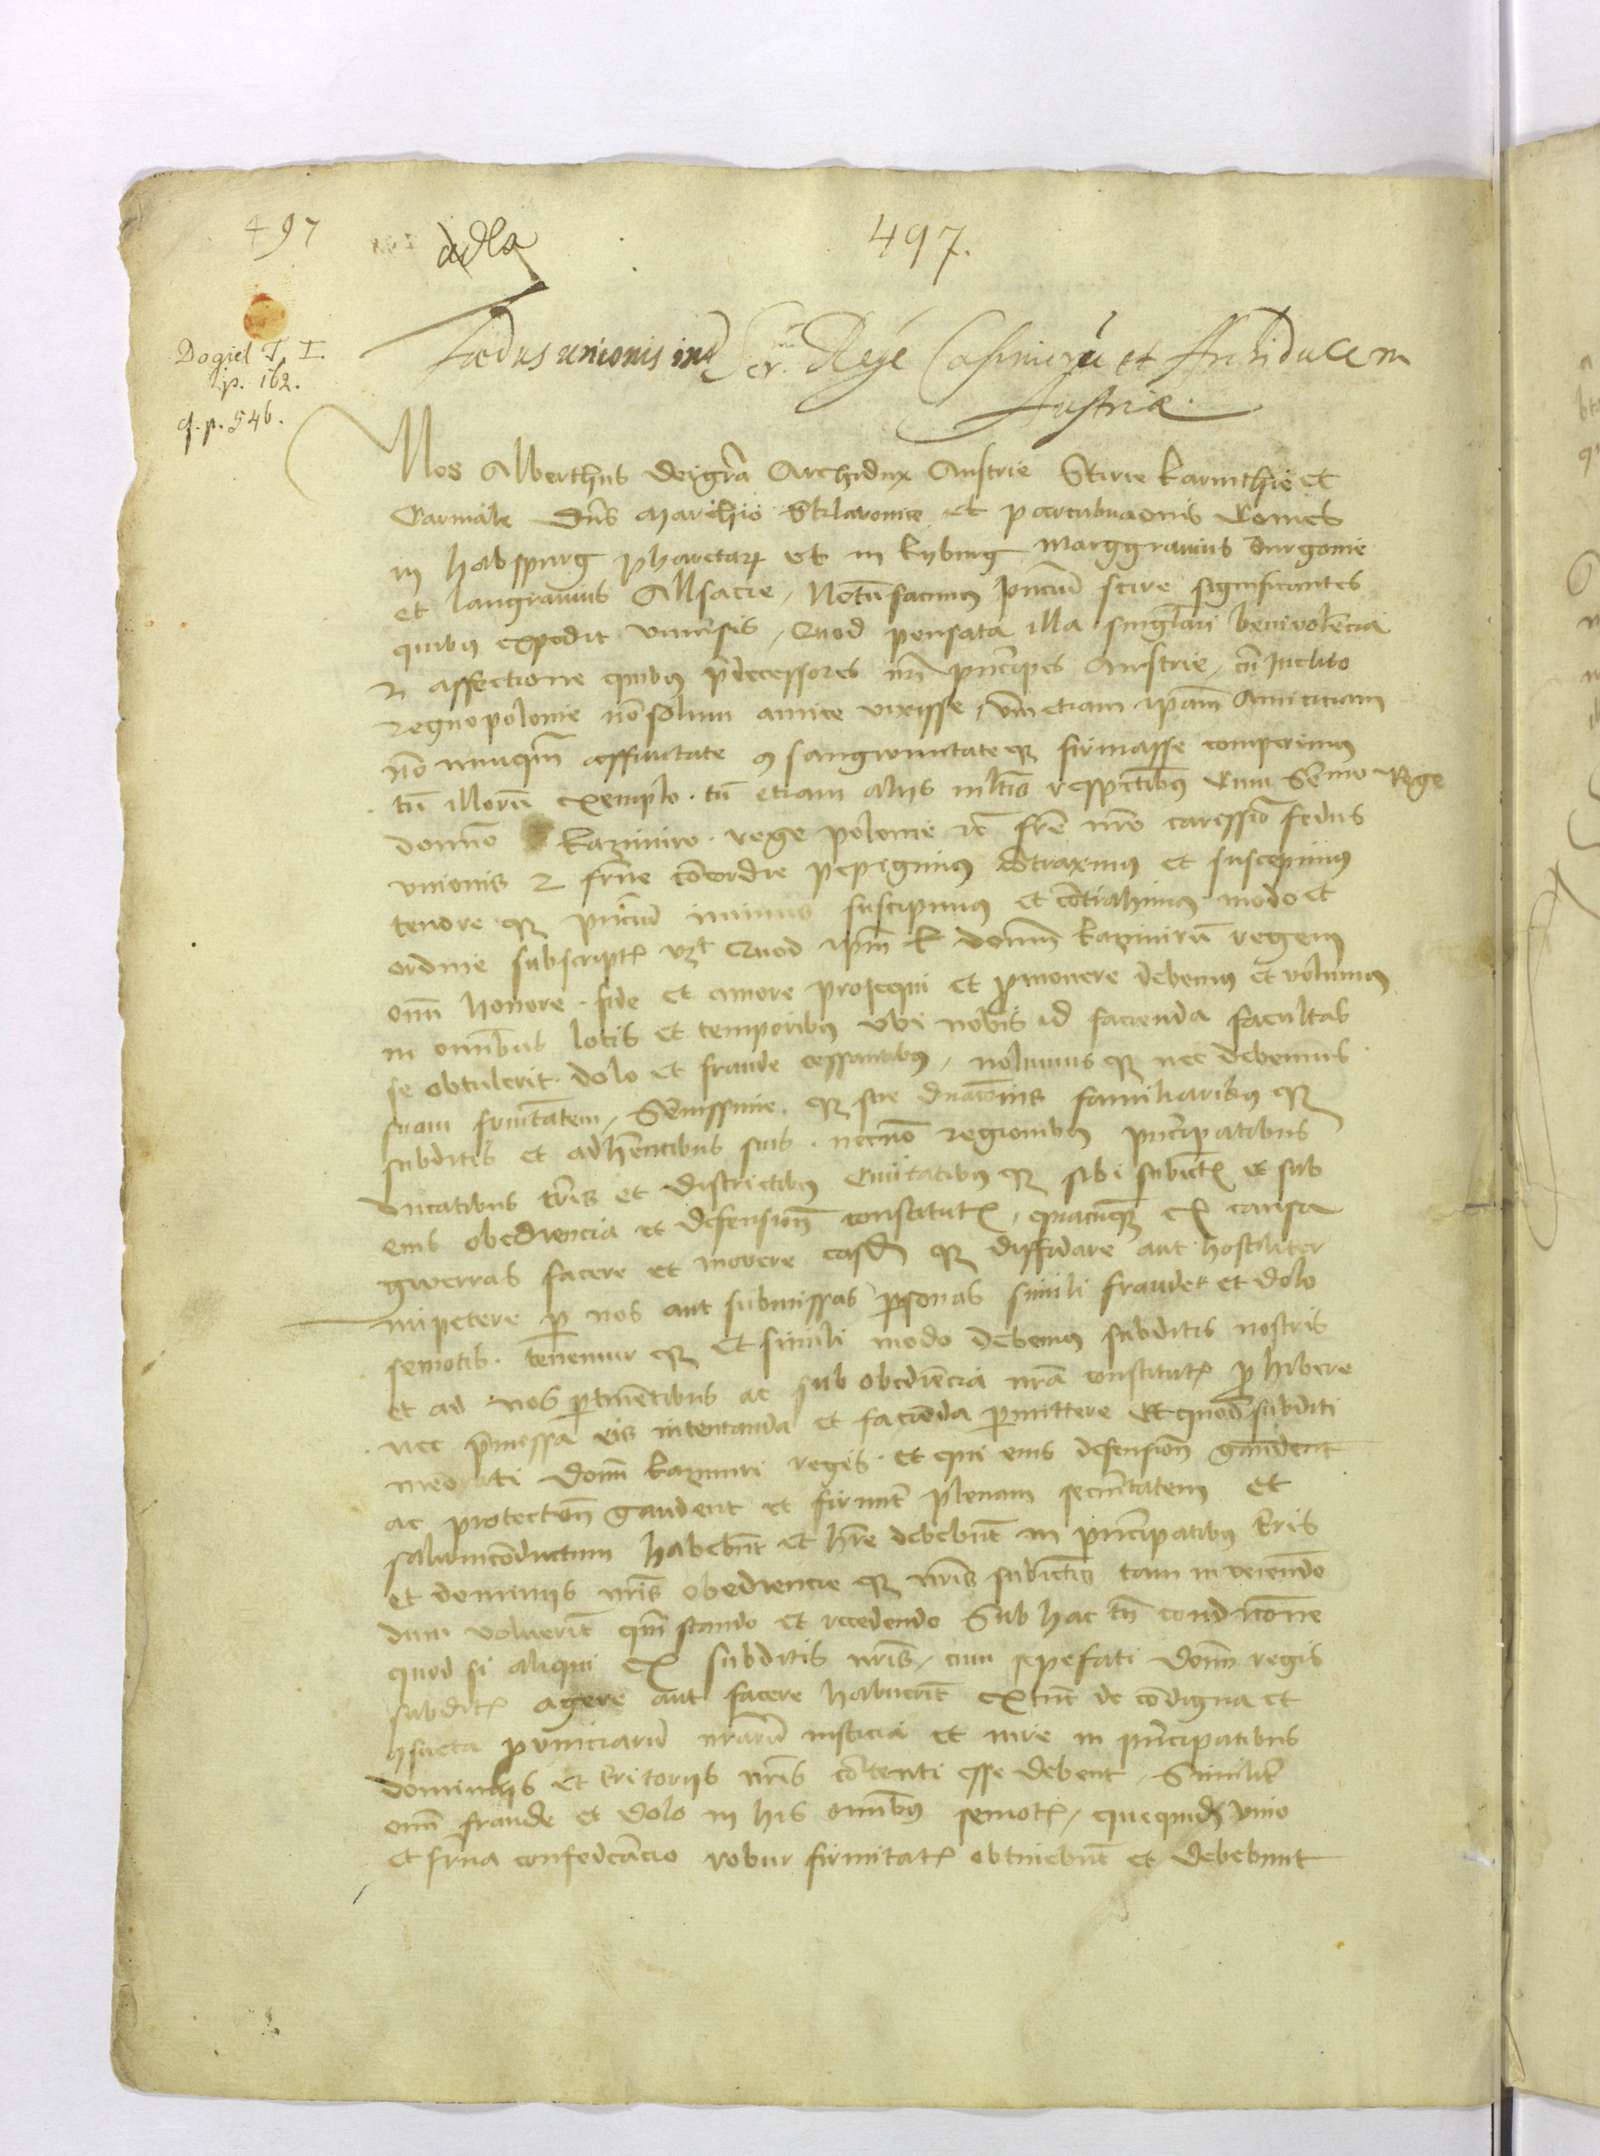 497
adla
497.
Dogiel T. I.
p. 162.
q. p. 546.
Fœdus unionis int Ser. Regē Casimirū et Archiducem
Austriæ
Nos Alberthus deigrā Archidux Austrie Stirie Karinthie et
Carniole Dns Marchio Sklavonice et portusnaonis Comes
in habspurg pharetarum et in kyburg Marggravius Burgonie
et langravius Allsacie, Notūfacimus pntium scire significantes
quibus expedit universis, Quod pensata illa singlari benivolencia
et affectione quibus pdecessores nri principes Austrie, cū Inclito
regnopolonie nōsolum amice vixisse, verum etiam ipam Amiciciam
nō nunquam affinitate consangwinitateque firmasse comperimus
tū illorū exemplo. tū etiam aliis multis respectibus cum Sermo Rege
domno Kazimiro rege polonie etc fre nro carissimo fedus
unionis et frne concordie pepigimus contraximus et suscepimus
tenore que pntium inimus suscipimus et contrahimus modo et
ordine subscriptis vzt Quod ipm k domnum kazimirū regem
omni honore. fide et amore prosequi et promovere debemus et volumus
in omnibus locis et temporibus ubi nobis id facienda facultas
se obtulerit. dolo et fraude cessantibus, nolumus que nec debemus
suam frnitatem, Senissime que sue dnacionis familiaribus que
subditis et adherentibus suis. necnō regionibus principatibus
ducatibus terris et districtibus Civitatibus que sibi subiectis et sub
eius obediencia et defensione constitutis, quacunque ex causa
gwerras facere et movere eosdem que diffidare aut hostiliter
impetere per nos aut submissas personas simili fraude et dolo
semotis. tenemur que Et simili modo debemus subditis nostris
et ad nos pertinentibus ac sub obediencia nra constitutis prohibere
nec premissa eis intentanda et facienda permittere Et quod subditi
memorati domni kazimiri regis. et qui eius defensione gaudent
ac protectione gaudent et firmiter plenam securitatem et
salvumconductum habebunt et hre debebunt in principatibus terris
et dominiis nris obediencie que nris subiectis tam in veniendo
dum voluerint quam stando et recedendo Sub hac tamen condicione
quod si aliqui ex subditis nris, cum sepefati domni regis
subditis agere aut facere habuerint extunc de condigna et
consueta provinciarum nrarum iusticia et iure in principatibus
dominiis et territoriis nris contenti esse debent, Similiter
omni fraude et dolo in his omnibus semotis, quequidem unio
et frna confederacio robur firmitatis obtinebunt et debebunt